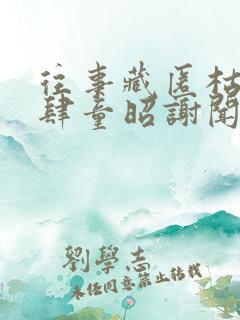 往事藏匿枯
肆童昭謝聞
劉學志
未經同意禁止轉載